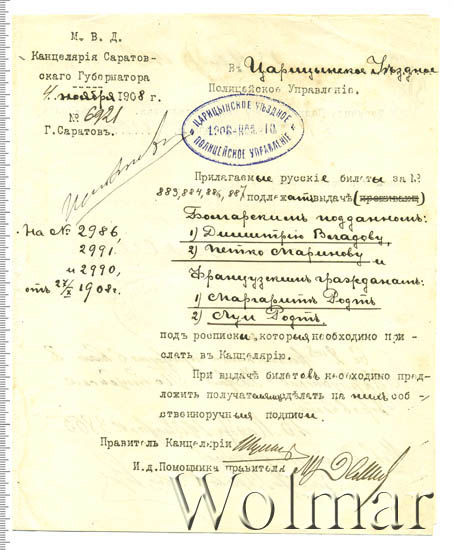 М. В. Д.
Канцелярія Саратов-
скаго Губернатора
4 ноября 1908 г.
№ 6921
Г. Саратовъ.
На № 2986,
2991,
и 2990,
отъ 27/X 1908 г.
Въ Царицынское Уѣздное
Полицейское Управленіе.
ЦАРИЦЫНСКОЕ УѢЗДНОЕ
1908-НОЯ.-10
ПОЛИЦЕЙСКОЕ УПРАВЛЕНІЕ
Прилагаемые русскіе билеты за №
883, 884, 886, 887 подлежатъ выдачѣ
Болгарскимъ подданнымъ:
1) Димитрію Владову,
2) Петко Маринову и
Французскимъ гражданамъ:
1) Маргаритѣ Родтъ
2) Луи Родтъ
подъ росписки, которыя необходимо при-
слать въ Канцелярію.
При выдачѣ билетовъ необходимо пред-
ложить получателямъ сдѣлать на нихъ соб-
ственноручныя подписи.
Правитель Канцеляріи
И.д. Помощника правителя
Wolmar